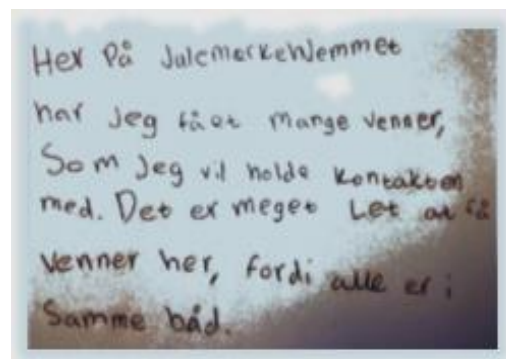 Her På Julemærkehjemmet
har jeg fået mange venner,
Som jeg vil holde kontakten
med. Det er meget Let at få
venner her, fordi alle er i
Samme båd.